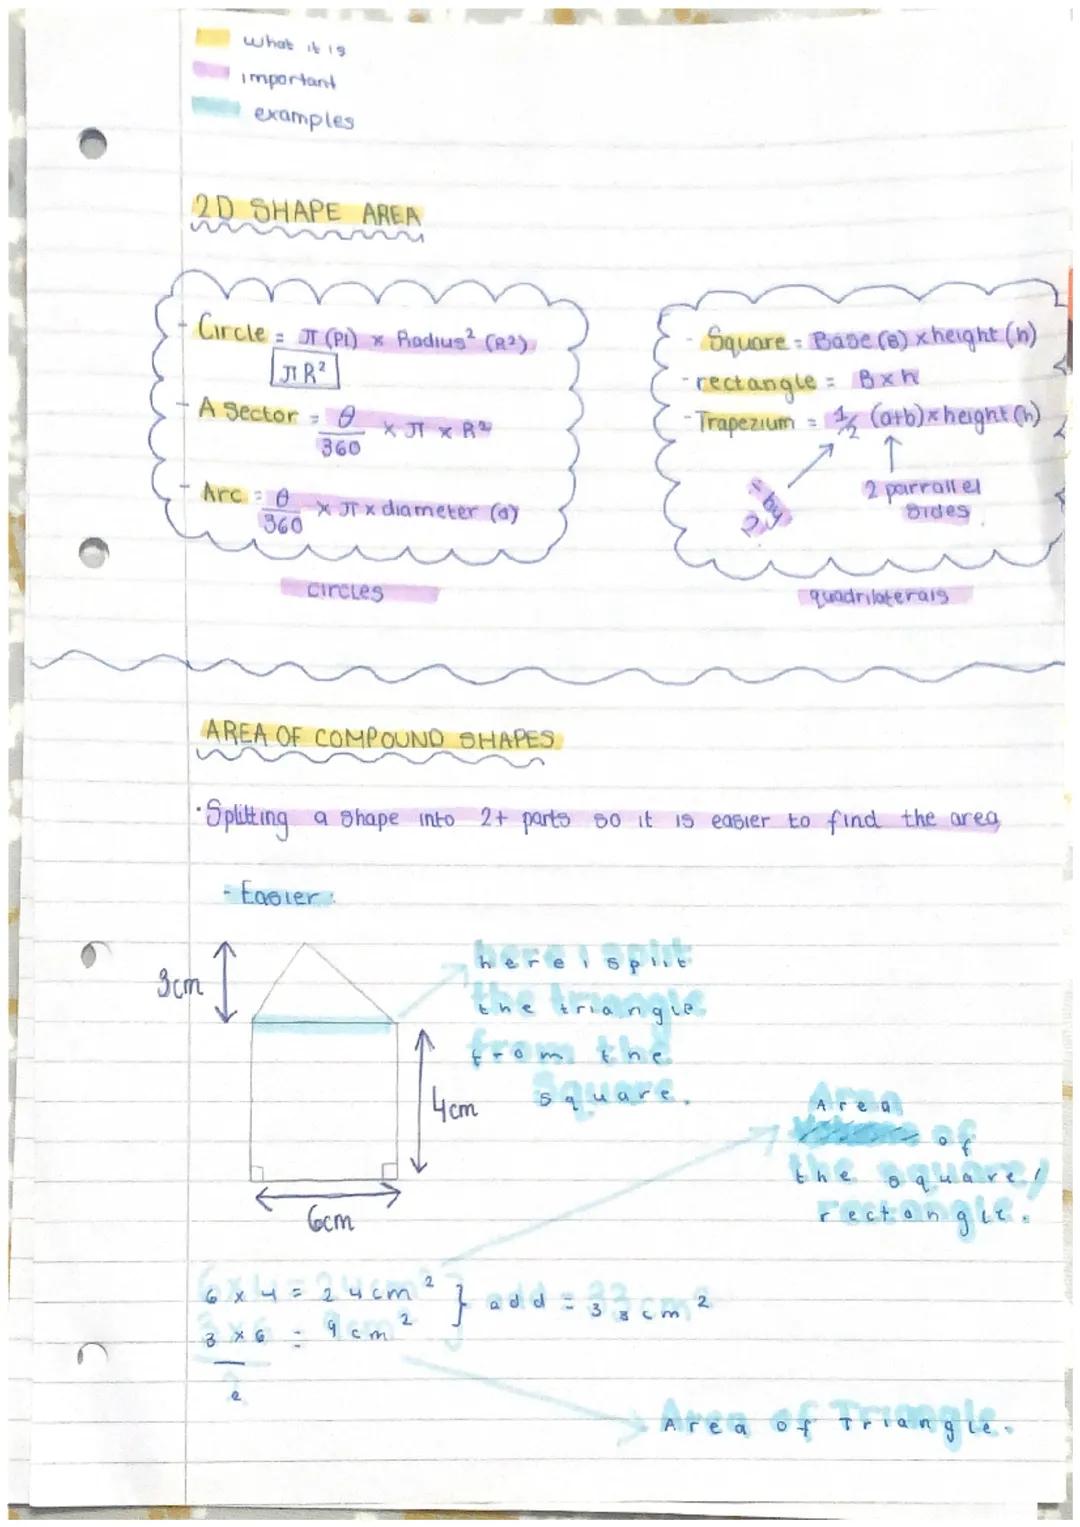 what it is
important
examples
2D SHAPE AREA
- Circle = π (Pi) x Radius² (R²)
πR²
- A Sector = θ/360 x π x R²
- Arc = θ/360 x π x diameter (d)
circles
- Square = Base (B) x height (h)
- rectangle = B x h
- Trapezium = 1/2 (a+b) x height (h)
÷ by 2
2 parrallel
sides
quadrilaterals
AREA OF COMPOUND SHAPES
· Splitting a shape into 2+ parts so it is easier to find the area
- Easier:
3cm
here i split
the triangle
from the
square.
4cm
6cm
Area
of
the square/
rectangle.
6 x 4 = 24cm² } add = 33cm²
3 x 6 / 2 = 9cm²
Area of Triangle.